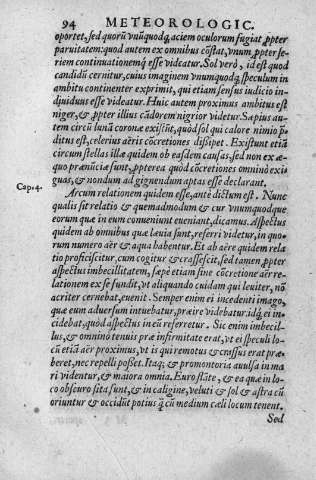 94 METEOROLOGIC.
oportet, sed quorū vnūquodq; aciem oculorum fugiat ꝓpter
paruitatem: quod autem ex omnibus cōstat, vnum, ꝓpter se-
riem continuationemq́; esse videatur. Sol verò, id est quod
candidū cernitur, cuius imaginem vnumquodq; speculum in
ambitu continenter exprimit, qui etiam sensus iudicio in-
diuiduus esse videatur. Huic autem proximus ambitus est
niger, & ꝓpter illius cādorem nigrior videtur. Sæpius au-
tem circū lunā coronæ existūt, quòd sol qui calore nimio p̄-
ditus est, celerius aëris cōcretiones dissipet. Existunt etiā
circum stellas illæ quidem ob easdem causas, sed non ex æ-
quo prænūciæ sunt, ꝓpterea quòd cōcretiones omninò exi-
guas, & nondum ad gignendum aptas esse declarant.
Cap. 4.
Arcum relationem quidem esse, antè dictum est. Nunc
qualis sit relatio & quemadmodum & cur vnumquodque
eorum quæ in eum conueniunt eueniant, dicamus. Aspectus
quidem ab omnibus quæ læuia sunt, referri videtur, in quo-
rum numero aër & aqua habentur. Et ab aëre quidem rela
tio proficiscitur, cum cogitur & crassescit, sed tamen ꝓpter
aspectus imbecillitatem, sæpè etiam sine cōcretione aër re-
lationem ex se fundit, vt aliquando cuidam qui leuiter, nō
acriter cernebat, euenit. Semper enim ei incedenti imago,
quæ eum aduersum intuebatur, præire videbatur. idq́; ei in-
cidebat, quòd aspectus in eū referretur. Sic enim imbecil-
lus, & omninò tenuis præ infirmitate erat, vt ei speculi lo-
cū etiā aër proximus, vt is qui remotus & crassus erat præ-
beret, nec repelli posset. Itaq; & promontoria auulsa in ma
ri videntur, & maiora omnia. Euro flāte, & ea quæ in lo-
co obscuro sita sunt, & in caligine, veluti & sol & astra cū
oriuntur & occidūt potius q̄ cū medium cæli locum tenent.
Sed